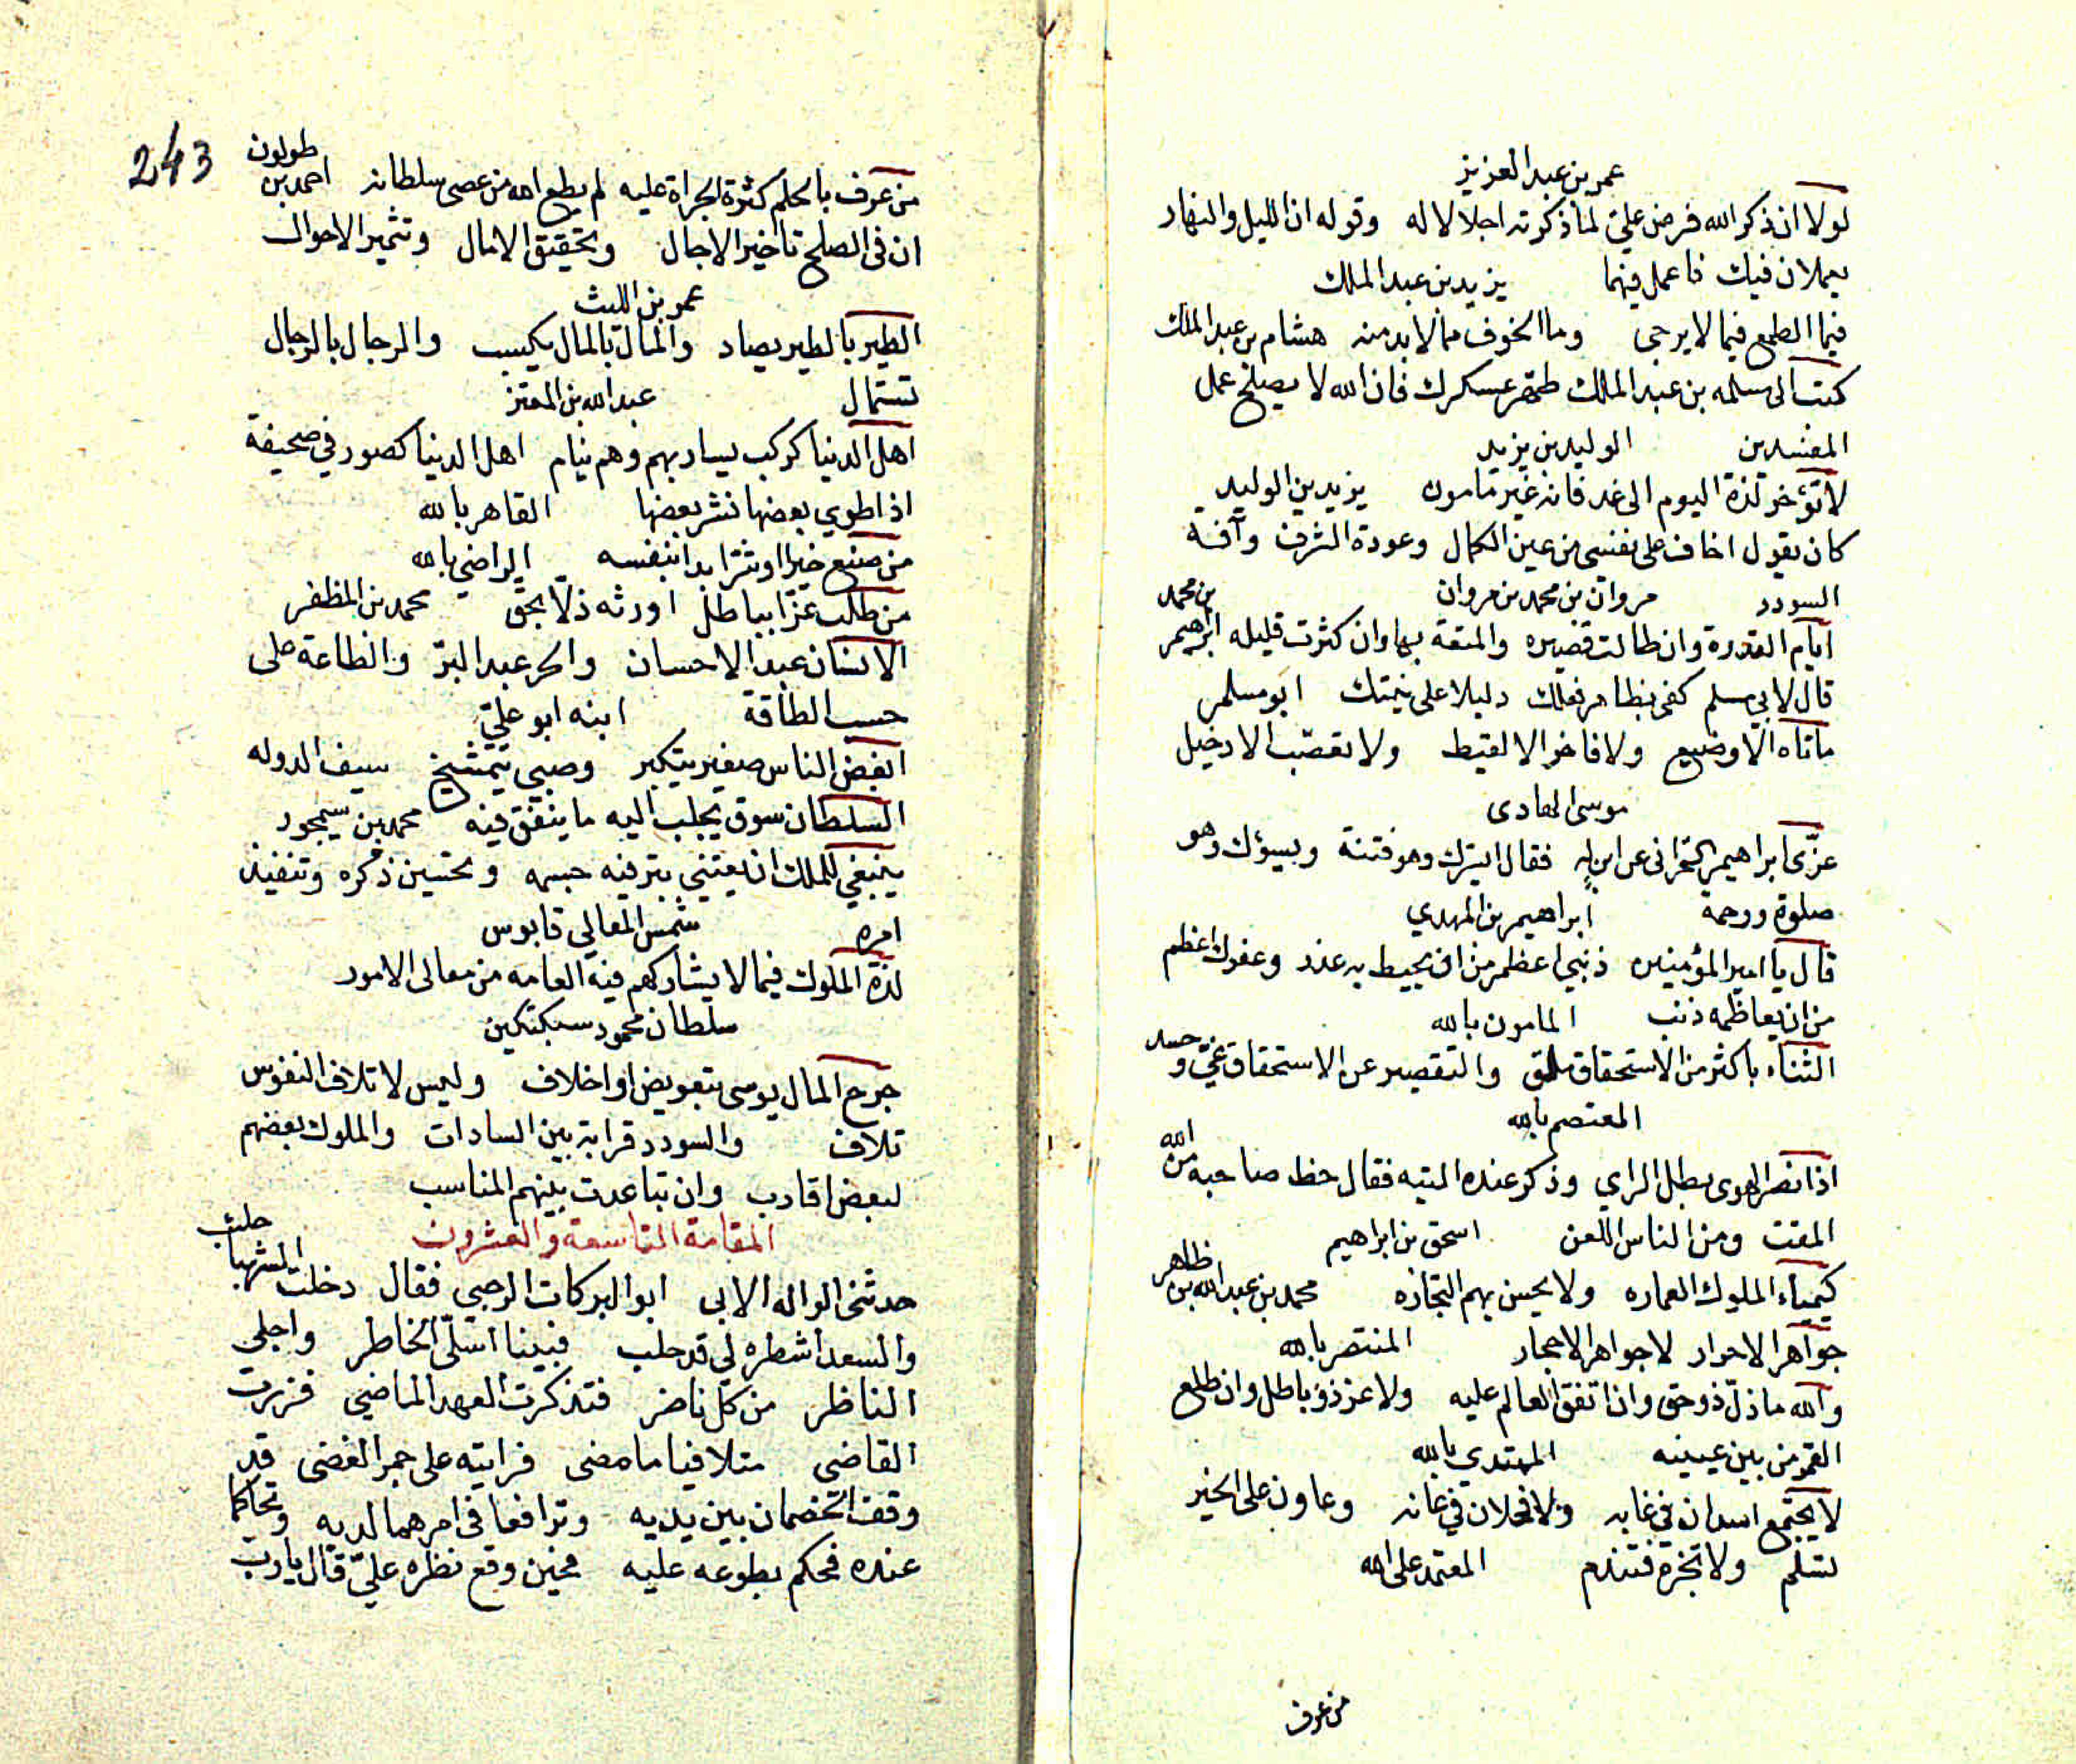 عمر بن عبد العزيز
لولا ان ذكر الله فرض علي لما ذكرته اجلالا له وقوله ان الليل والنهار
يعملان فيك فاعمل فيهما يزيد بن عبد الملك
فيما الطمع فيما لا يرجى وما الخوف مما لابد منه هشام بن عبد الملك
كتب الى مسلمه بن عبد الملك طهر عسكرك فان الله لا يصلح عمل
المفسدين الوليد بن يزيد
لا تؤخر لذة اليوم الى غد فانه غير مامون يزيد بن الوليد
كان يقول اخاف على نفسي من عين الكمال وعودة الشرف وآفة
السودد مروان بن محمد بن مروان
ايام القدرة وان طالت قصيره والمتعة بها وان كثرت قليله ابراهيم بن محمد
قال لابي مسلم كفى بظاهر فعلك دليلا على نيتك ابو مسلم
ما تاه الا وضيع ولا فاخر الا لقيط ولا تعصب الا دخيل
موسى الهادى
عزى ابراهيم الحرانى عن ابن له فقال ايسرك وهو فتنة ويسوؤك وهو
صلوة ورحمة ابراهيم بن المهدي
قال يا امير المؤمنين ذنبي اعظم من ان يحيط به عذر وعفوك اعظم
من ان يعاظمه ذنب المامون بالله
الثناء باكثر من الاستحقاق ملق والتقصير عن الاستحقاق عي و حسد
المعتصم بالله
اذا نصر الهوى بطل الراي وذكر عنده التيه فقال حظ صاحبه من الله
المقت ومن الناس اللعن اسحق بن ابراهيم
كيمياء الملوك العماره ولا يحسن بهم التجاره محمد بن عبد الله بن طاهر
جواهر الاحرار لا جواهر الاحجار المنتصر بالله
والله ما ذل ذو حق وان اتفق العالم عليه ولا عز ذو باطل وان طلع
القمر من بين عينيه المهتدي بالله
لا يجتمع اسدان في غابه ولا فحلان في عانه وعاون على الخير
تسلم ولا تجزه فتندم المعتمد على الله
من عرف
243
من عرف بالحلم كثرة الجراة عليه لم يطع الله من عصى سلطانه احمد بن طولون
ان فى الصلح تاخير الاجال وتحقيق الامال وتثمير الاموال
عمرو بن الليث
الطير بالطير يصاد والمال بالمال يكسب والرجال بالرجال
تستمال عبد الله بن المعتز
اهل الدنيا كركب يسار بهم وهم نيام اهل الدنيا كصور في صحيفة
اذا طوي بعضها نشر بعضها القاهر بالله
من صنع خيرا او شرا بدا بنفسه الراضي بالله
من طلب عزا بباطل اورثه ذلا بحق محمد بن المظفر
الانسان عبد الاحسان والحر عبد البر والطاعة على
حسب الطاقة ابنه ابو علي
ابغض الناس صغير يتكبر وصبي يتمشيخ سيف الدوله
السلطان سوق يجلب اليه ما ينفق فيه محمد بن سيمجور
ينبغي للملك ان يعتني بترفيه جسمه وتحسين ذكره وتنفيذ
امره شمس المعالي قابوس
لذة الملوك فيما لا يشاركهم فيه العامه من معالى الامور
سلطان محمود سبكتكين
جرح المال يوسى بتعويض او اخلاف وليس لاتلاف النفوس
تلاف والسودد قرابة بين السادات والملوك بعضهم
لبعض اقارب وان تباعدت بينهم المناسب
المقامة التاسعة والعشرون
حدثنى الواله الابى ابو البركات الرحبي فقال دخلت الشهبا حلب
والسعد اشطره لي قد حلب فبينا اسلي الخاطر واجلي
الناظر من كل ناضر فتذكرت العهد الماضي فزرت
القاضى متلافيا ما مضى فرايته على جمر الغضى قد
وقف الخصمان بين يديه وترافعا فى امرهما لديه وتحاكما
عنده فحكم بطوعه عليه فحين وقع نظره علي قال يا رب